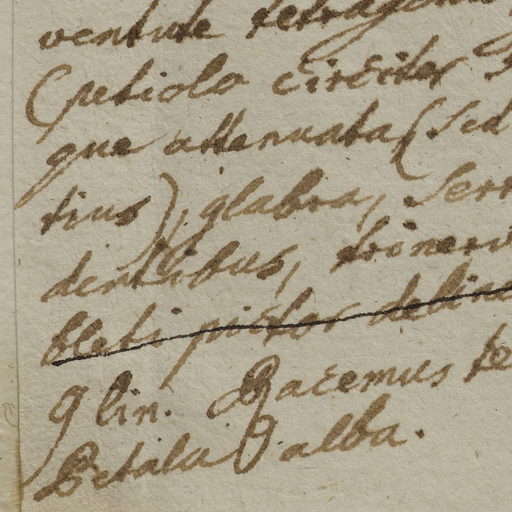 ventute tetragon
(petiolo circiter
que attenuata (sed
tius), glabra, serr
dentibus, trinerv
bleti pictor deline
9 lin. Racemus te
Petala 9. alba.